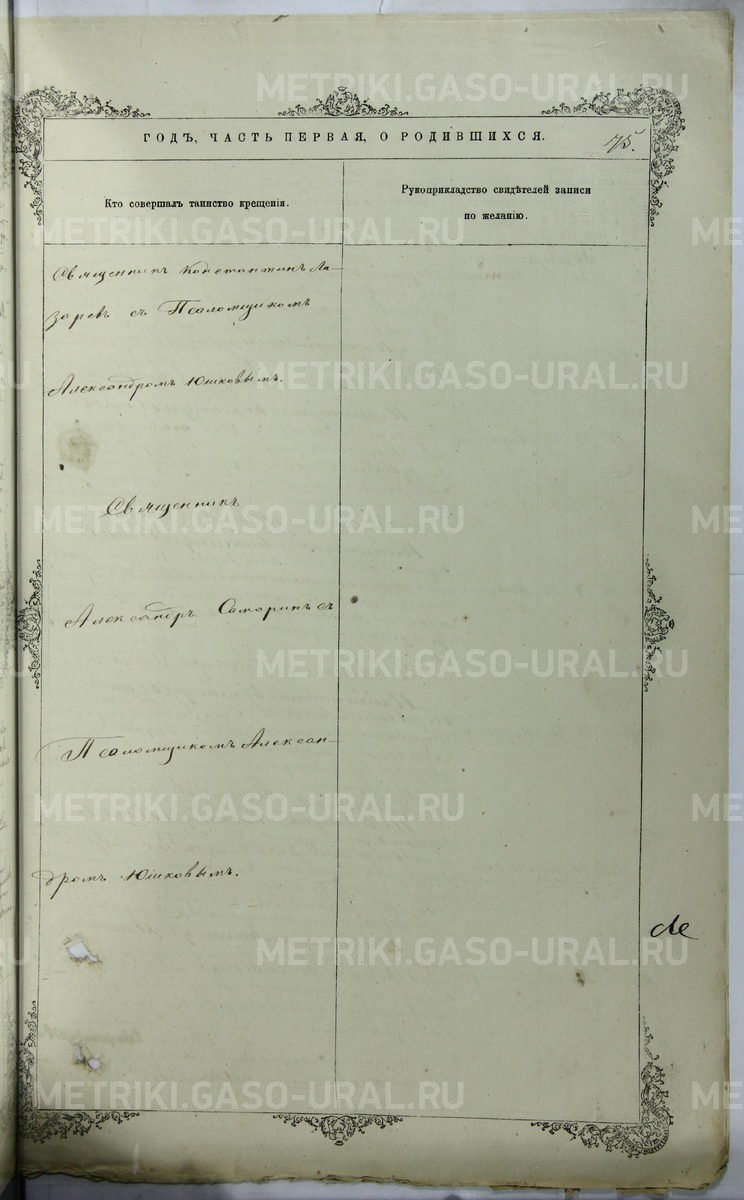 ГОДЪ, ЧАСТЬ ПЕРВАЯ, О РОДИВШИХСЯ.
75.
Кто совершалъ таинство крещенія.
Рукоприкладство свидѣтелей записи
по желанію.
Священникъ Константинъ Ла-
заревъ съ Псаломщикомъ
Александромъ Юшковымъ.
Священникъ
Александръ Самаринъ съ
Псаломщикомъ Алексан-
дромъ Юшковымъ.
METRIKI.GASO-URAL.RU
METRIKI.GASO-URAL.RU
METRIKI.GASO-URAL.RU
METRIKI.GASO-URAL.RU
METRIKI.GASO-URAL.RU
METRIKI.GASO-URAL.RU
METRIKI.GASO-URAL.RU
METRIKI.GASO-URAL.RU